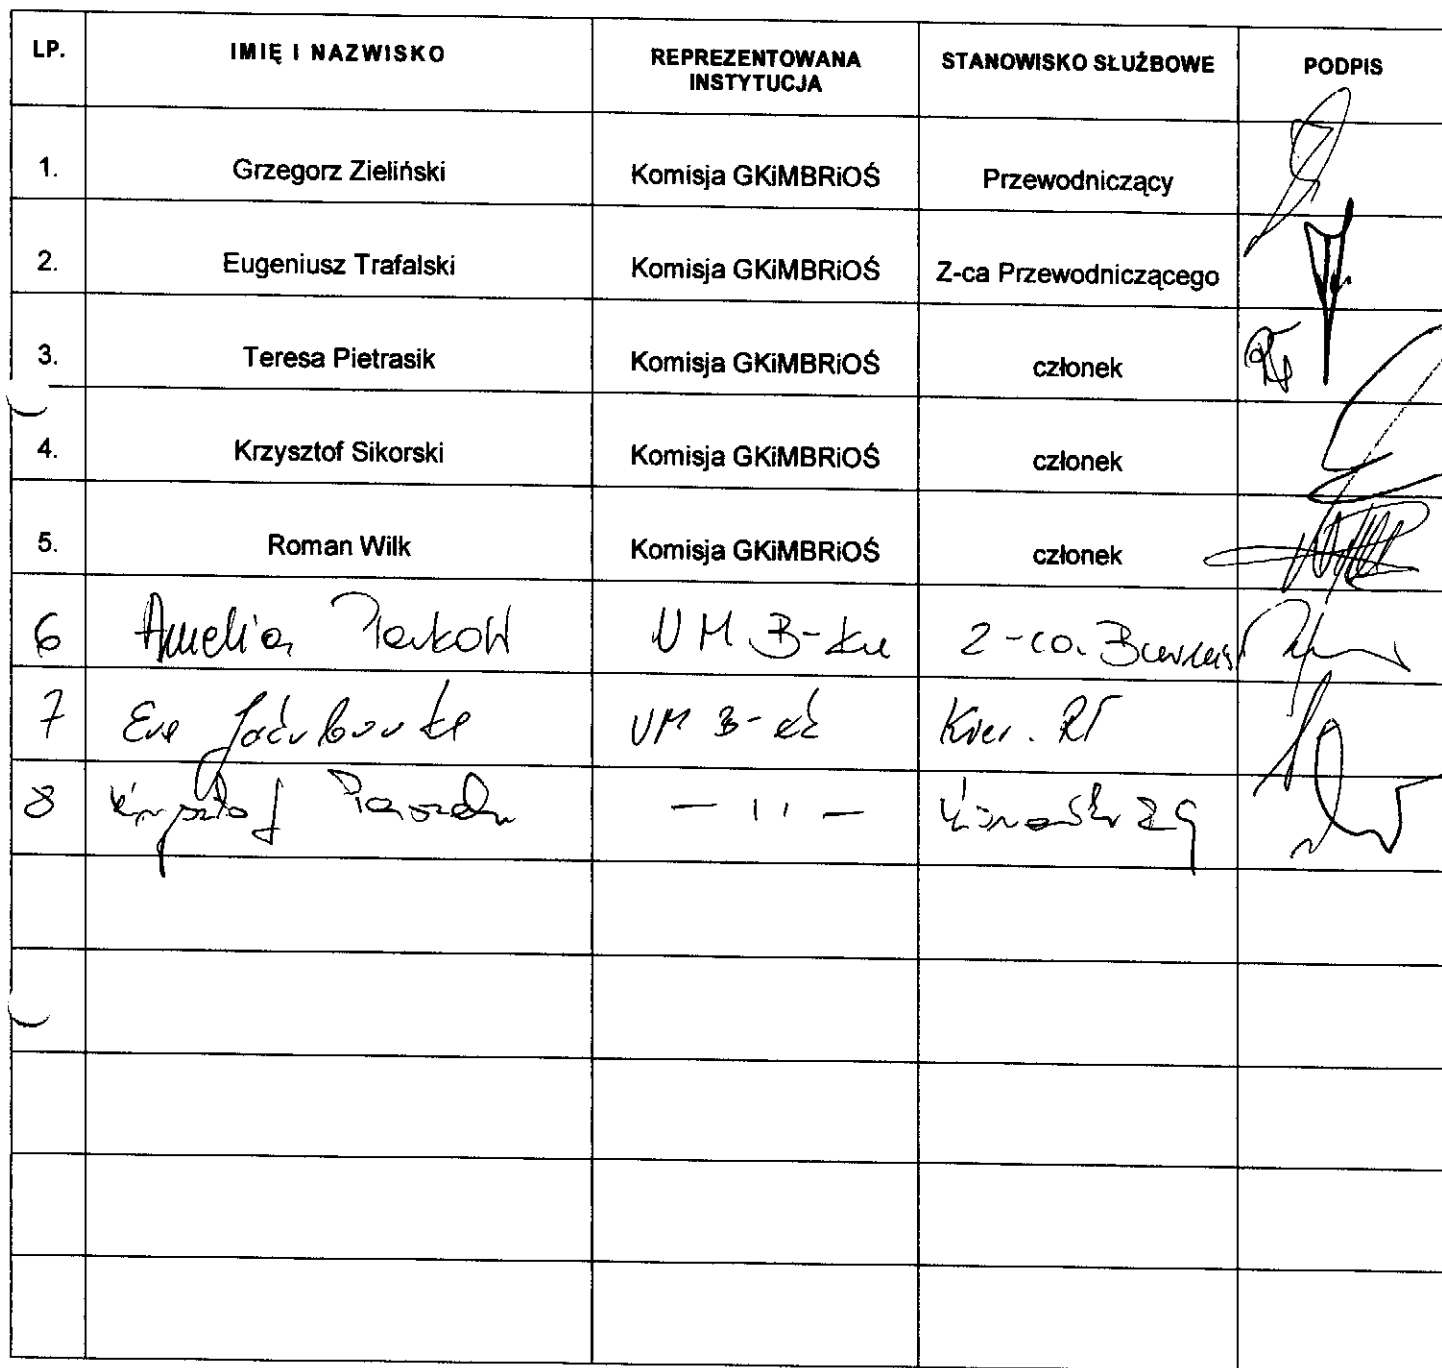 LP. IMIĘ I NAZWISKO REPREZENTOWANA INSTYTUCJA STANOWISKO SŁUŻBOWE PODPIS
1. Grzegorz Zieliński Komisja GKiMBRiOŚ Przewodniczący
2. Eugeniusz Trafalski Komisja GKiMBRiOŚ Z-ca Przewodniczącego
3. Teresa Pietrasik Komisja GKiMBRiOŚ członek
4. Krzysztof Sikorski Komisja GKiMBRiOŚ członek
5. Roman Wilk Komisja GKiMBRiOŚ członek
6 Amelia UM Z-ca
7 UM Kier.
8 Krzysztof